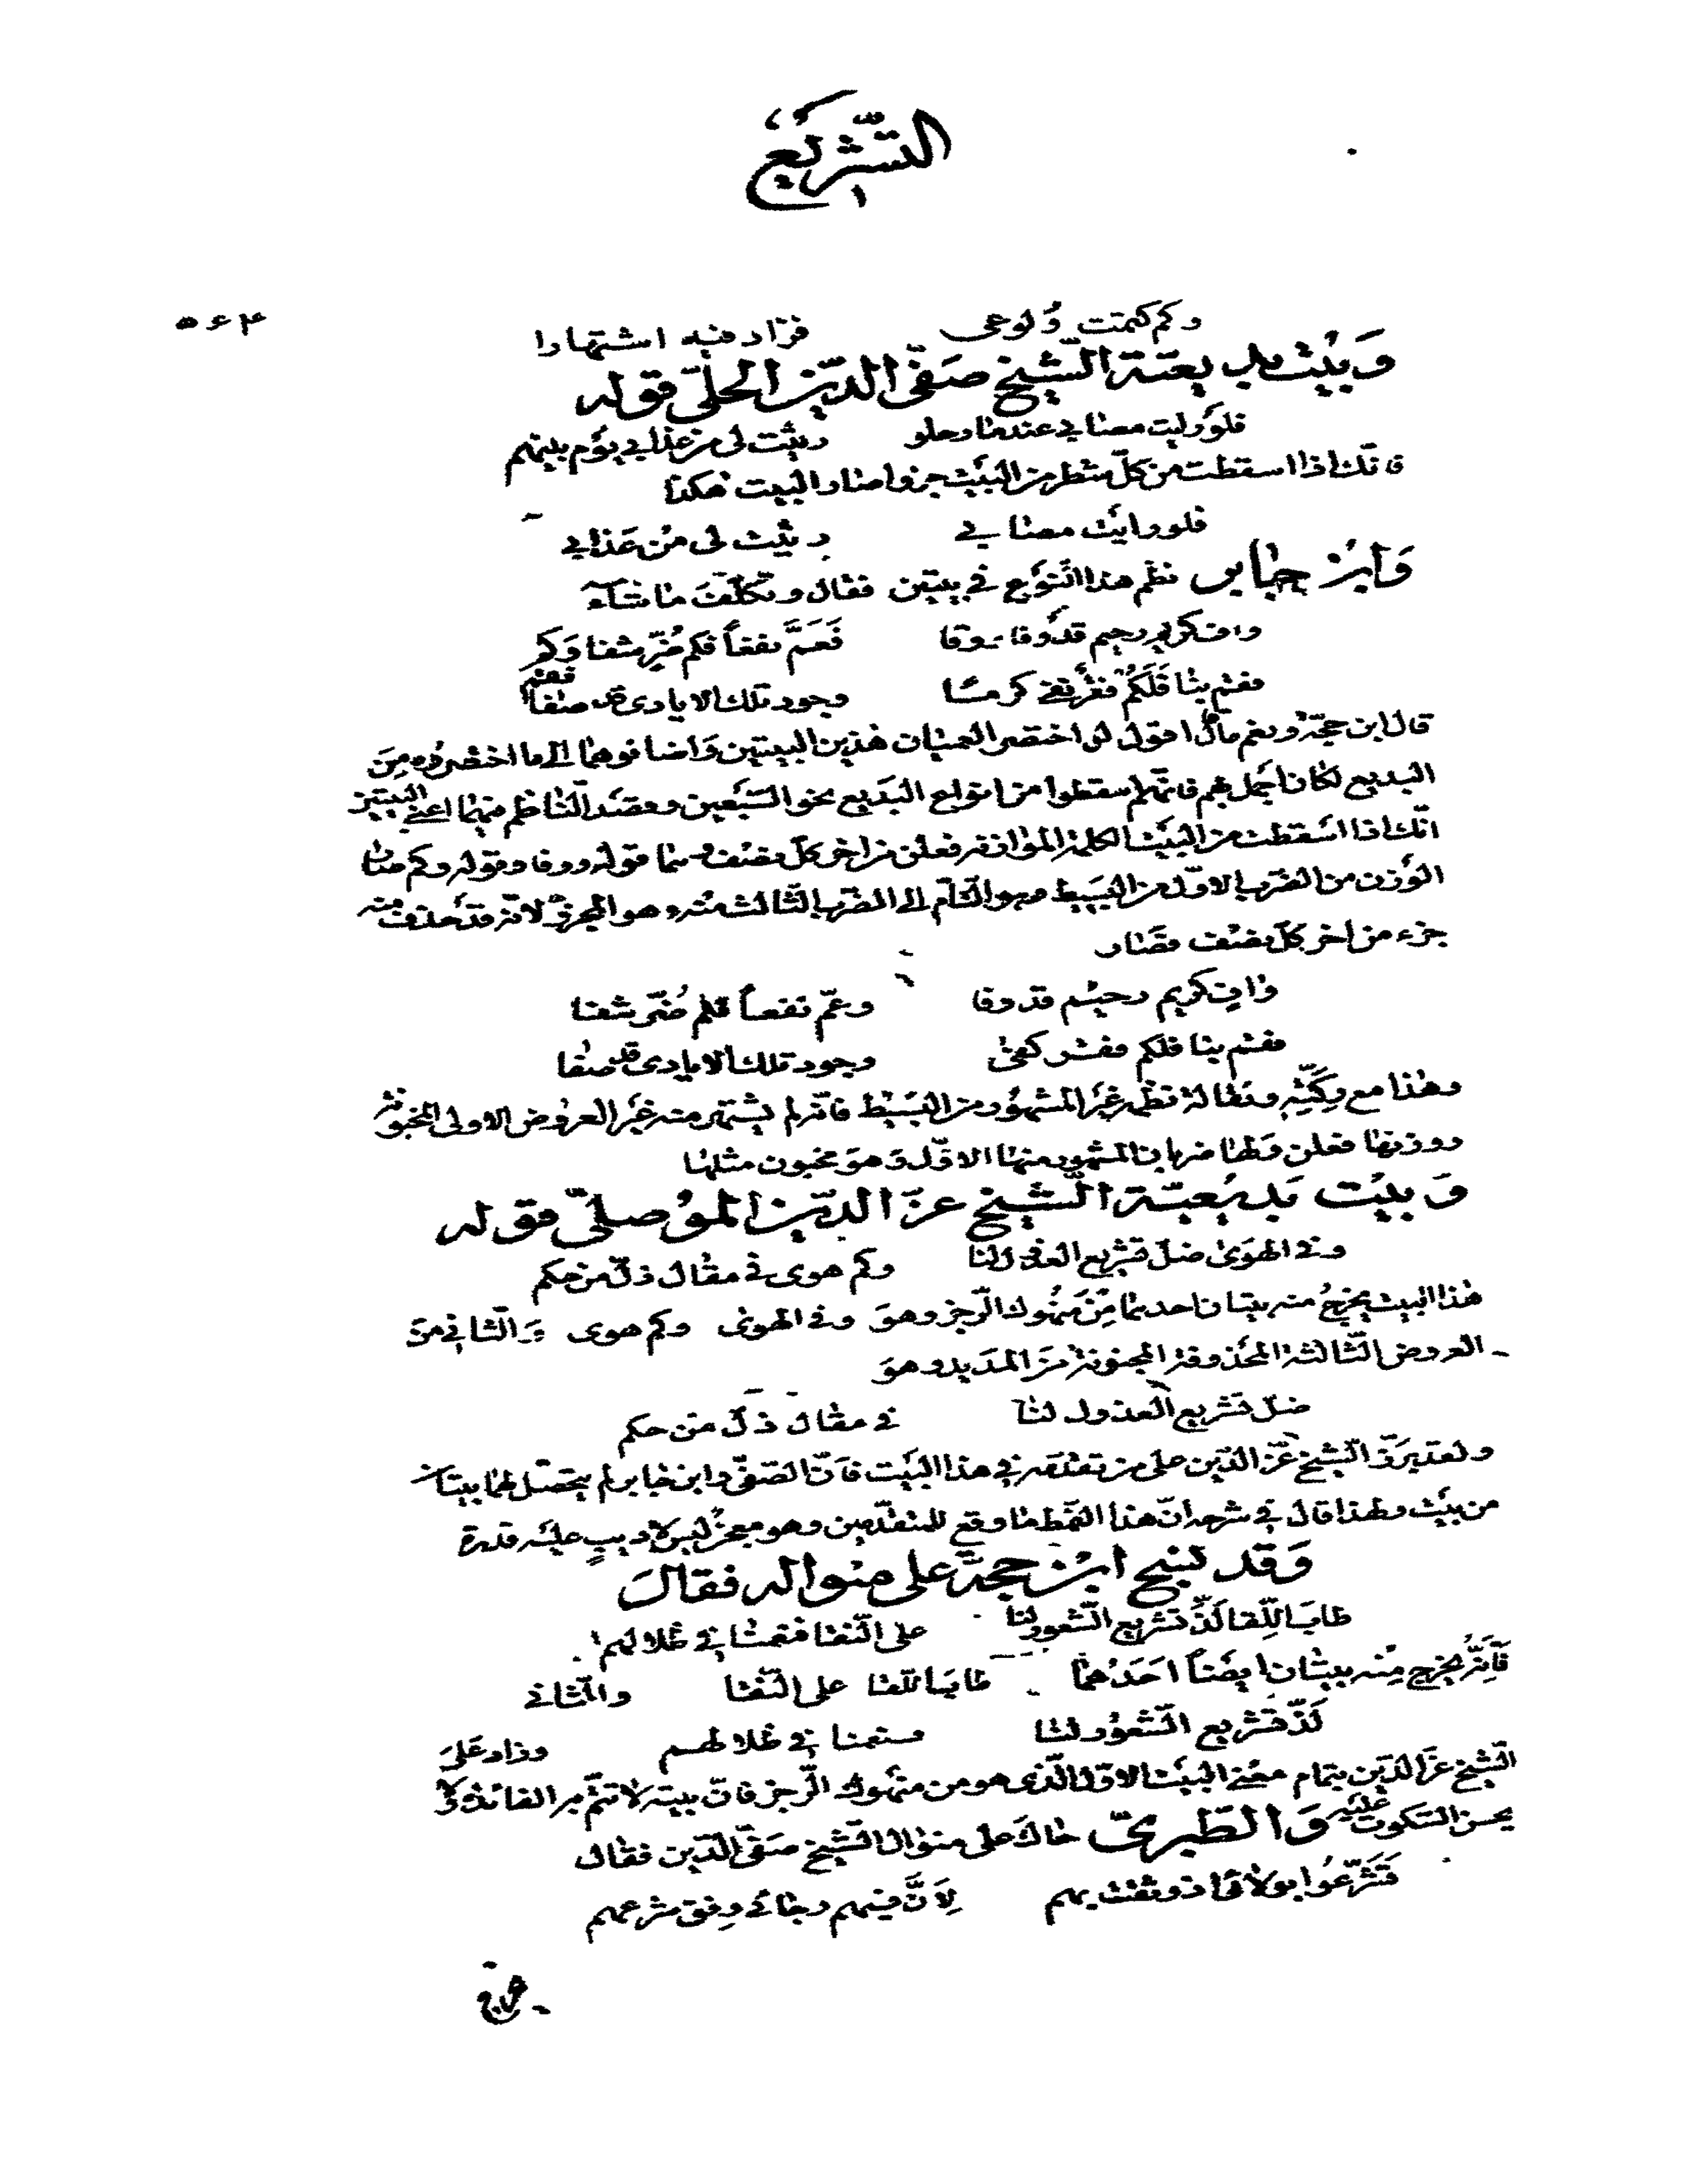 التشريع
٥٦٤
وكم كتمت ولوعي فزاد فيه اشتهارا
وبيت بديعية الشيخ صفي الدين الحلي قوله
فلو رايت مصابي عندما رحلو رثيت لي من عذابي يوم بينهم
فانك اذا اسقطت من كل شطر من البيت جزوا صار البيت هكذا
فلو رايت مصابي رثيت لي من عذابي
وابن جابر نظم هذا النوع في بيتين فقال وتكلف ما شاء
واف كريم رحيم قد وفا ووقا فعم نفعا فكم ضر شفا وكم
فقم بنا فلكم فقر كفى كرما وجود تلك الايادي قد صفا فقم
قال ابن حجة ونعم ما قال اقول لو اختصر العميان هذين البيتين واضافوهما الى ما اختصروه من
البديع لكان اجمل بهم فانهم اسقطوا من انواع البديع نحو السبعين وقصد الناظم فيهما اعني البيتين
انك اذا اسقطت من البيت الكلمة الموازنة فعلن من اخر كل نصف وهما قوله ووقا وقوله وكم صار
الوزن من الضرب الاول من البسيط وهو التام الى الضرب الثالث منه وهو المجزو لانه قد حذف منه
جزء من اخر كل نصف فصار
واف كريم رحيم قد وفا وعم نفعا فكم ضر شفا
فقم بنا فلكم فقر كفى وجود تلك الايادي قد صفا
وهذا مع ركته وثقالة نظمه غير المشهور من البسيط فانه لم يشتهر منه غير العروض الاولى المخبونة
ووزنها فعلن ولها ضربان المشهور منهما الاول وهو مخبون مثلها
وبيت بديعية الشيخ عز الدين الموصلي قوله
وفي الهوى ضل تشريع العذول لنا وكم هوى في مقال ذل من حكم
هذا البيت يخرج منه بيتان احدهما من منهوك الرجز وهو وفي الهوى وكم هوى والثاني من
العروض الثالثة المحذوفة المخبونة من المديد وهو
ضل تشريع العذول لنا في مقال ذل من حكم
ولقد برز الشيخ عز الدين على من تقدمه في هذا البيت فان الصفي وابن جابر لم يتحصل لهما بيتان
من بيت ولهذا قال في شرحه ان هذا النمط ما وقع للمتقدمين وهو معجز ليس لاديب عليه قدرة
وقد نسج ابن حجة على منواله فقال
طاب اللقا لذ تشريع الشعور لنا على النقا فنعمنا في ظلالهم
فانه يخرج منه بيتان ايضا احدهما طاب اللقا على النقا والثاني
لذ تشريع الشعور لنا فنعمنا في ظلالهم وزاد على
الشيخ عز الدين بتمام معنى البيت الاول الذي هو من منهوك الرجز فان بيته لا تتم به الفائدة ولا
يحسن السكوت عليه والطبري حاك على منوال الشيخ صفي الدين فقال
لان فيهم رجائي وفق شرعهم